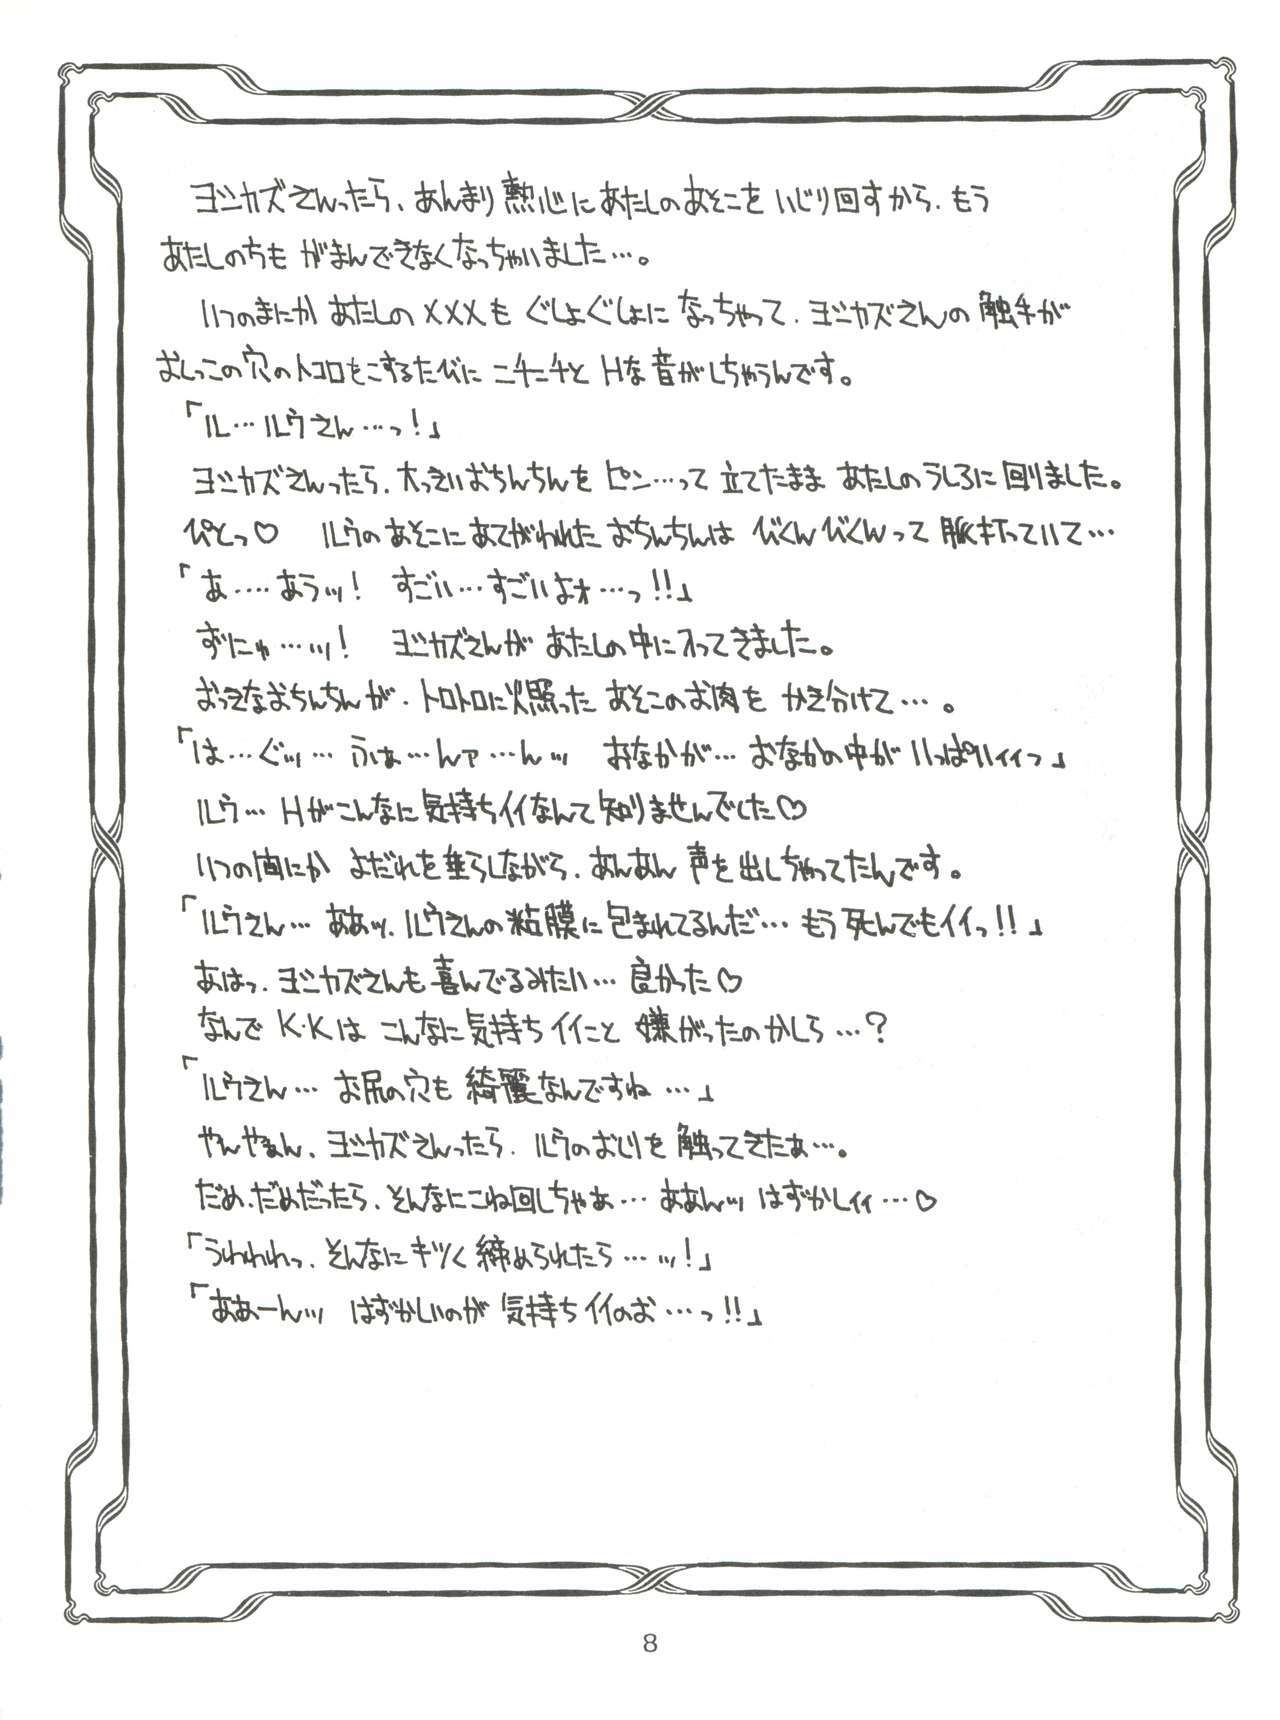 ヨシカズさんったら、あんまり熱心にあたしのあそこを いじり回すから、もう
あたしのちも がまんできなくなっちゃいました…。
いつのまにか あたしの×××も ぐしょぐしょに なっちゃって、ヨシカズさんの 触手が
おしっこの穴のトコロをこするたびに ニチニチと Hな音がしちゃうんです。
「ル…ルウさん…っ!」
ヨシカズさんったら、大っきいおちんちんを ピン…って 立てたまま あたしのうしろに 回りました。
ぴとっ♡ ルウのあそこにあてがわれた おちんちんは びくんびくんって 脈打っていて…
「あ…‥あうッ! すごい…すごいよォ…っ!!」
ずにゅ…ッ! ヨシカズさんが あたしの中に入ってきました。
おっきなおちんちんが、トロトロに火照った あそこのお肉を かき分けて…。
「は…ぐッ… ふぁ…んァ…んッ おなかが… おなかの中が いっぱいィィっ」
ルウ… Hがこんなに 気持ちイイなんて 知りませんでした♡
いつの間にか よだれを垂らしながら、あんあん 声を出しちゃってたんです。
「ルウさん… ああッ、ルウさんの粘膜に 包まれてるんだ… もう 死んでもイイっ!!」
あはっ、ヨシカズさんも 喜んでるみたい… 良かった♡
なんで K・Kは こんなに 気持ちイイこと 嫌がったのかしら…?
「ルウさん… お尻の穴も 綺麗なんですね…」
やんやぁん、ヨシカズさんったら、ルウのおしりを 触ってきたぁ…。
だめ、だめだったら、そんなにこね回しちゃぁ… ああんッ はずかしィィ…♡
「うわわわっ、そんなに キツく 締められたら…ッ!」
「ああーんッ はずかしいのが 気持ちイイのぉ…っ!!」
8